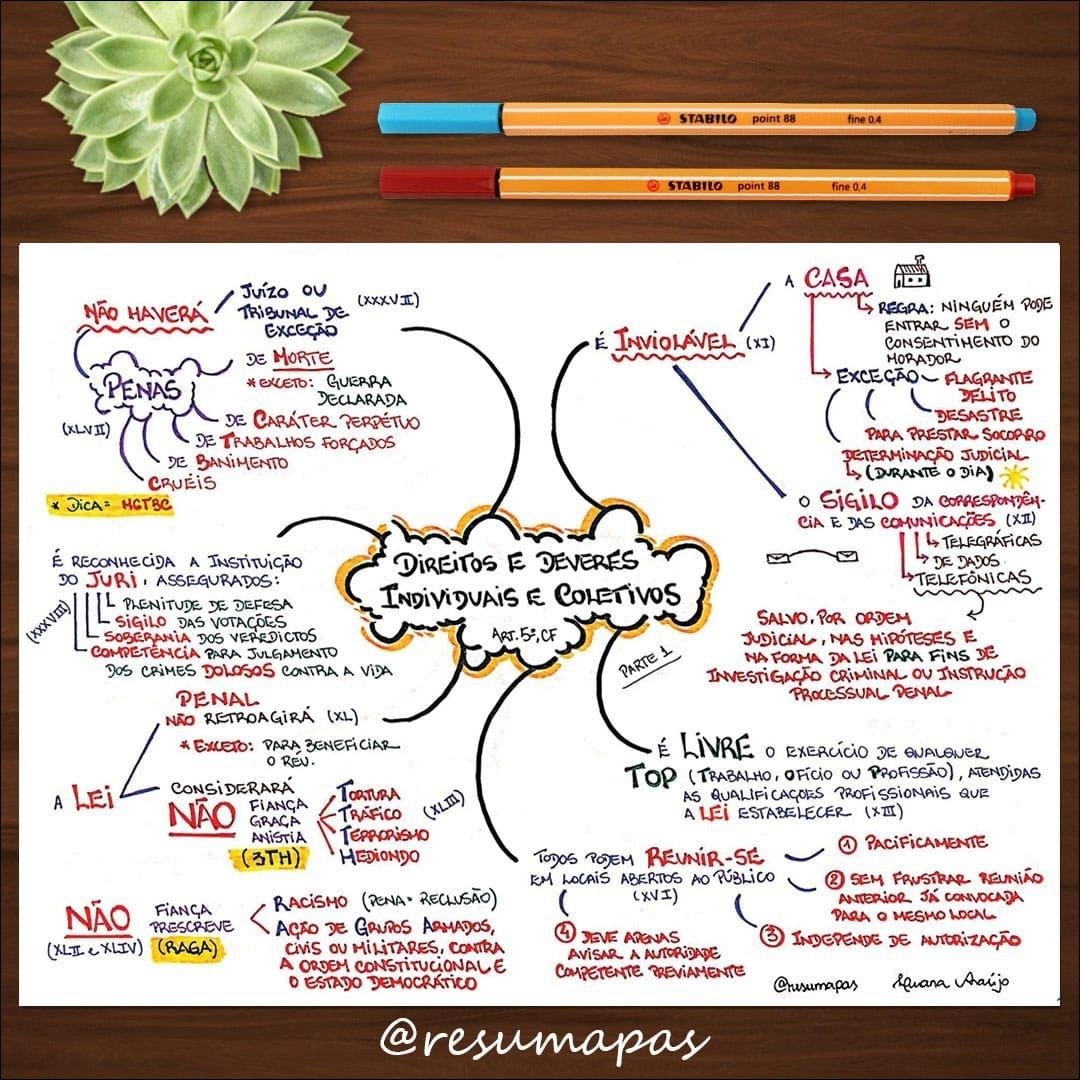 STABILO point 88 fine 0.4
STABILO point 88 fine 0.4
NÃO HAVERÁ
JUÍZO OU
TRIBUNAL DE
EXCEÇÃO
(XXXVII)
PENAS
(XLVII)
DE MORTE
* EXCETO: GUERRA
DECLARADA
DE CARÁTER PERPÉTUO
DE TRABALHOS FORÇADOS
DE BANIMENTO
CRUÉIS
* DICA = MCTBC
É RECONHECIDA A INSTITUIÇÃO
DO JURI, ASSEGURADOS:
(XXXVIII)
PLENITUDE DE DEFESA
SIGILO DAS VOTAÇÕES
SOBERANIA DOS VEREDICTOS
COMPETÊNCIA PARA JULGAMENTO
DOS CRIMES DOLOSOS CONTRA A VIDA
A LEI
PENAL
NÃO RETROAGIRÁ (XL)
* EXCETO: PARA BENEFICIAR
O RÉU.
CONSIDERARÁ
NÃO
FIANÇA
GRAÇA
ANISTIA
(3TH)
TORTURA
TRÁFICO
TERRORISMO
HEDIONDO
(XLIII)
NÃO
(XLII e XLIV)
FIANÇA
PRESCREVE
(RAGA)
RACISMO (PENA = RECLUSÃO)
AÇÃO DE GRUPOS ARMADOS,
CIVIS OU MILITARES, CONTRA
A ORDEM CONSTITUCIONAL E
O ESTADO DEMOCRÁTICO
DIREITOS E DEVERES
INDIVIDUAIS E COLETIVOS
ART. 5º, CF
PARTE 1
É INVIOLÁVEL (XI)
A CASA
REGRA: NINGUÉM PODE
ENTRAR SEM O
CONSENTIMENTO DO
MORADOR
EXCEÇÃO
FLAGRANTE
DELITO
DESASTRE
PARA PRESTAR SOCORRO
DETERMINAÇÃO JUDICIAL
(DURANTE O DIA)
O SIGILO DA CORRESPONDÊN-
CIA E DAS COMUNICAÇÕES (XII)
TELEGRÁFICAS
DE DADOS
TELEFÔNICAS
SALVO, POR ORDEM
JUDICIAL, NAS HIPÓTESES E
NA FORMA DA LEI PARA FINS DE
INVESTIGAÇÃO CRIMINAL OU INSTRUÇÃO
PROCESSUAL PENAL
É LIVRE O EXERCÍCIO DE QUALQUER
TOP (TRABALHO, OFÍCIO OU PROFISSÃO), ATENDIDAS
AS QUALIFICAÇÕES PROFISSIONAIS QUE
A LEI ESTABELECER (XIII)
TODOS PODEM REUNIR-SE
EM LOCAIS ABERTOS AO PÚBLICO
(XVI)
1 PACIFICAMENTE
2 SEM FRUSTRAR REUNIÃO
ANTERIOR JÁ CONVOCADA
PARA O MESMO LOCAL
3 INDEPENDE DE AUTORIZAÇÃO
4 DEVE APENAS
AVISAR A AUTORIDADE
COMPETENTE PREVIAMENTE
@resumapas
Araújo
@resumapas